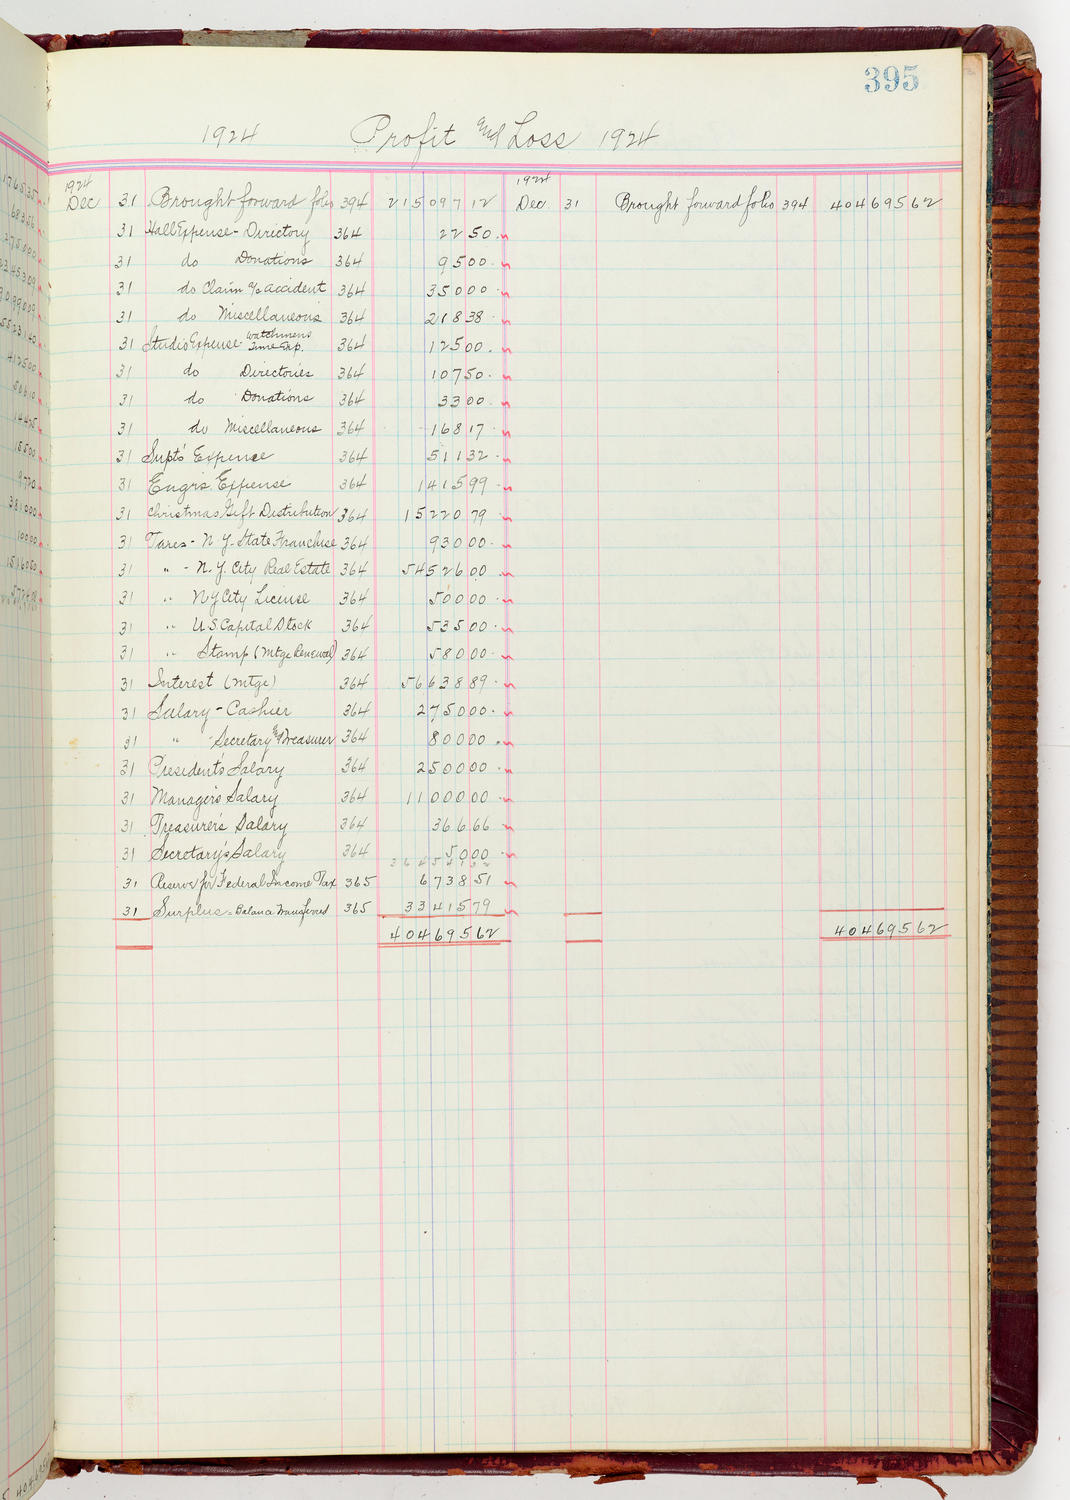 395
1924 Profit and Loss 1924
1924
Dec 31 Brought forward folio 394 21509712
31 Hall Expense - Directory 364 2250
31 do Donations 364 9500
31 do Claim a/c accident 364 35000
31 do Miscellaneous 364 21838
31 Studio Expense Watchmens Time Exp. 364 12500
31 do Directories 364 10750
31 do Donations 364 3300
31 do Miscellaneous 364 16817
31 Supt's Expense 364 51132
31 Engrs. Expense 364 141599
31 Christmas Gift Distribution 364 1522079
31 Taxes - N.Y. State Franchise 364 93000
31 " - N.Y. City Real Estate 364 5452600
31 " N Y City License 364 50000
31 " U.S. Capital Stock 364 53500
31 " Stamp (Mtge Renewal) 364 58000
31 Interest (Mtge) 364 5663889
31 Salary - Cashier 364 275000
31 " Secretary and Treasurer 364 80000
31 President's Salary 364 250000
31 Manager's Salary 364 1100000
31 Treasurer's Salary 364 36666
31 Secretary's Salary 364 5000
31 Reserve for Federal Income Tax 365 673851
31 Surplus - Balance Transferred 365 3341579
40469562
1924
Dec 31 Brought forward folio 394 40469562
40469562